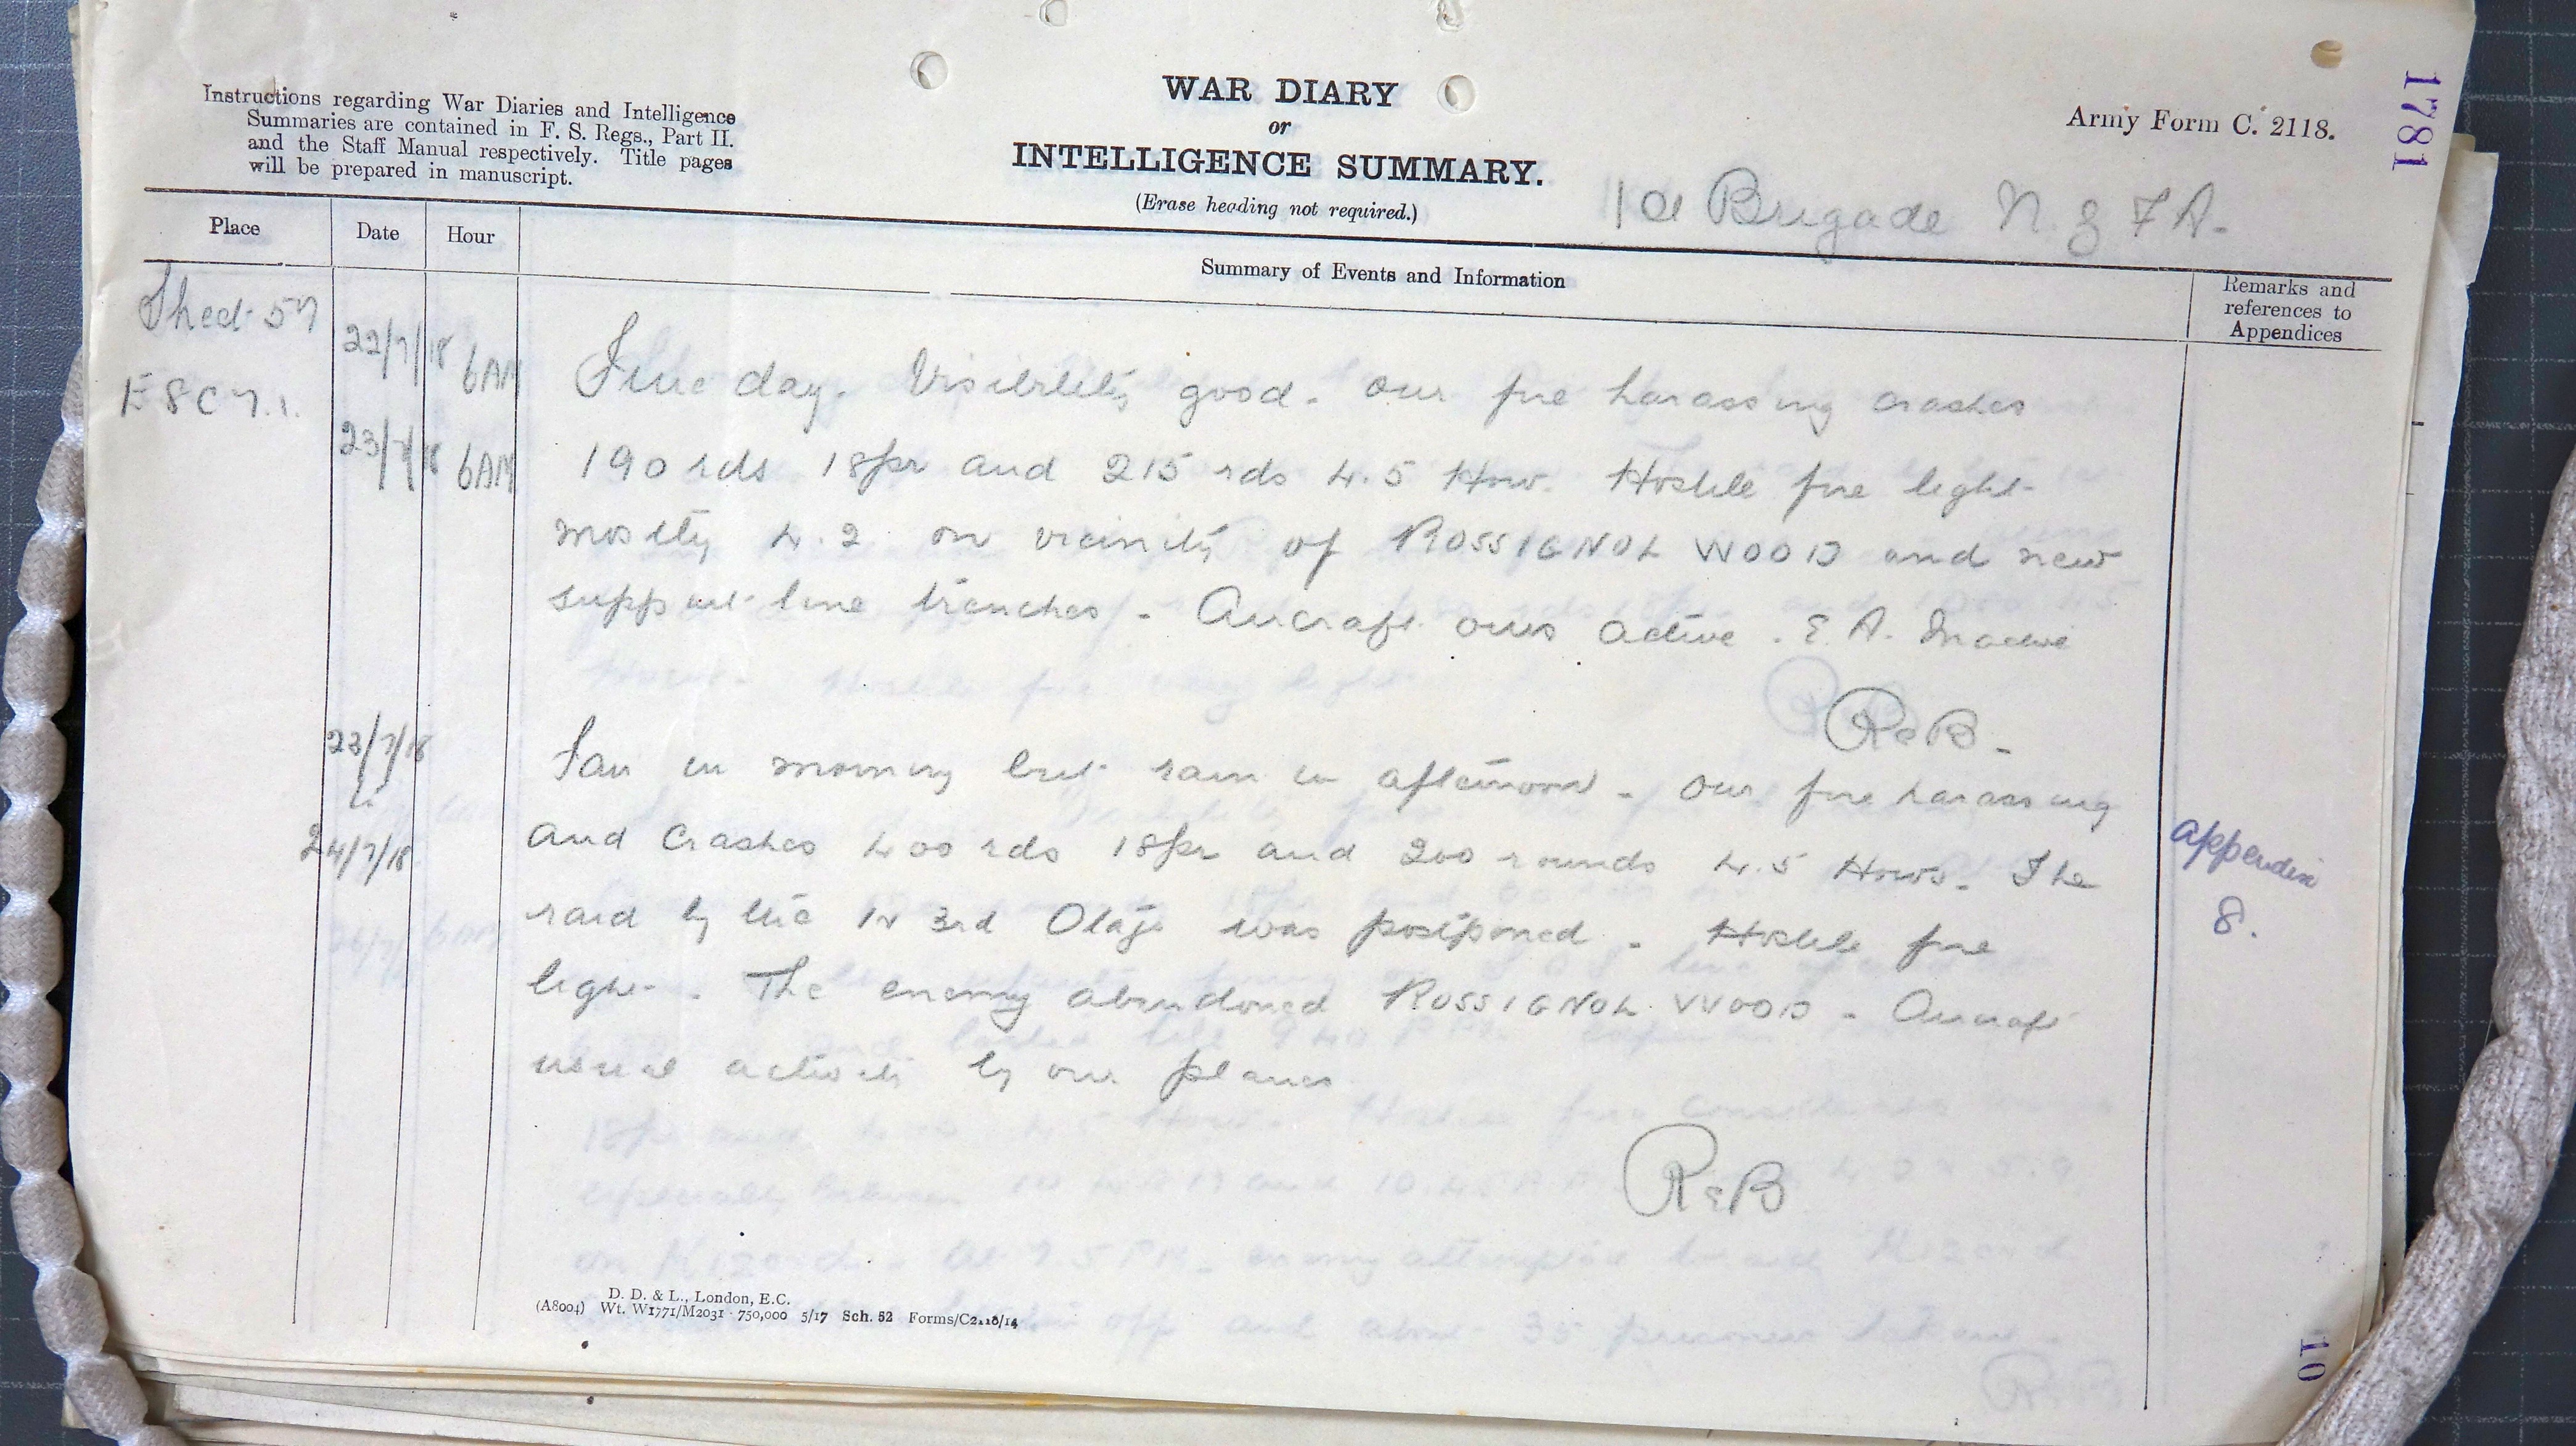 Instructions regarding War Diaries and Intelligence
Summaries are contained in F. S. Regs., Part II.
and the Staff Manual respectively. Title pages
will be prepared in manuscript.
WAR DIARY
or
INTELLIGENCE SUMMARY.
(Erase heading not required.)
Army Form C. 2118.
1781
1st Brigade N. Z F A.
Place
Date
Hour
Summary of Events and Information
Remarks and
references to
Appendices
Sheet 57
E 8 C 7.1.
22/7/18 6AM
23/7/18 6AM
Fine day. Visibility good. Our fire harassing crashes
190 rds 18pr and 215 rds 4.5 How. Hostile fire light
mostly 4.2 on vicinity of ROSSIGNOL WOOD and new
support line trenches. Aircraft ours active. E. A. Inactive
23/7/18
24/7/18
Fair in morning but rain in afternoon. Our fire harassing
and crashes 400 rds 18pr and 200 rounds 4.5 Hows. The
raid by the 3rd Otago was postponed. Hostile fire
light. The enemy abandoned ROSSIGNOL WOOD. Aircraft
usual activity by our planes
appendix
8.
D. D. & L., London, E.C.
(A8004) Wt. W1771/M2031 750,000 5/17 Sch. 52 Forms/C2118/14
10